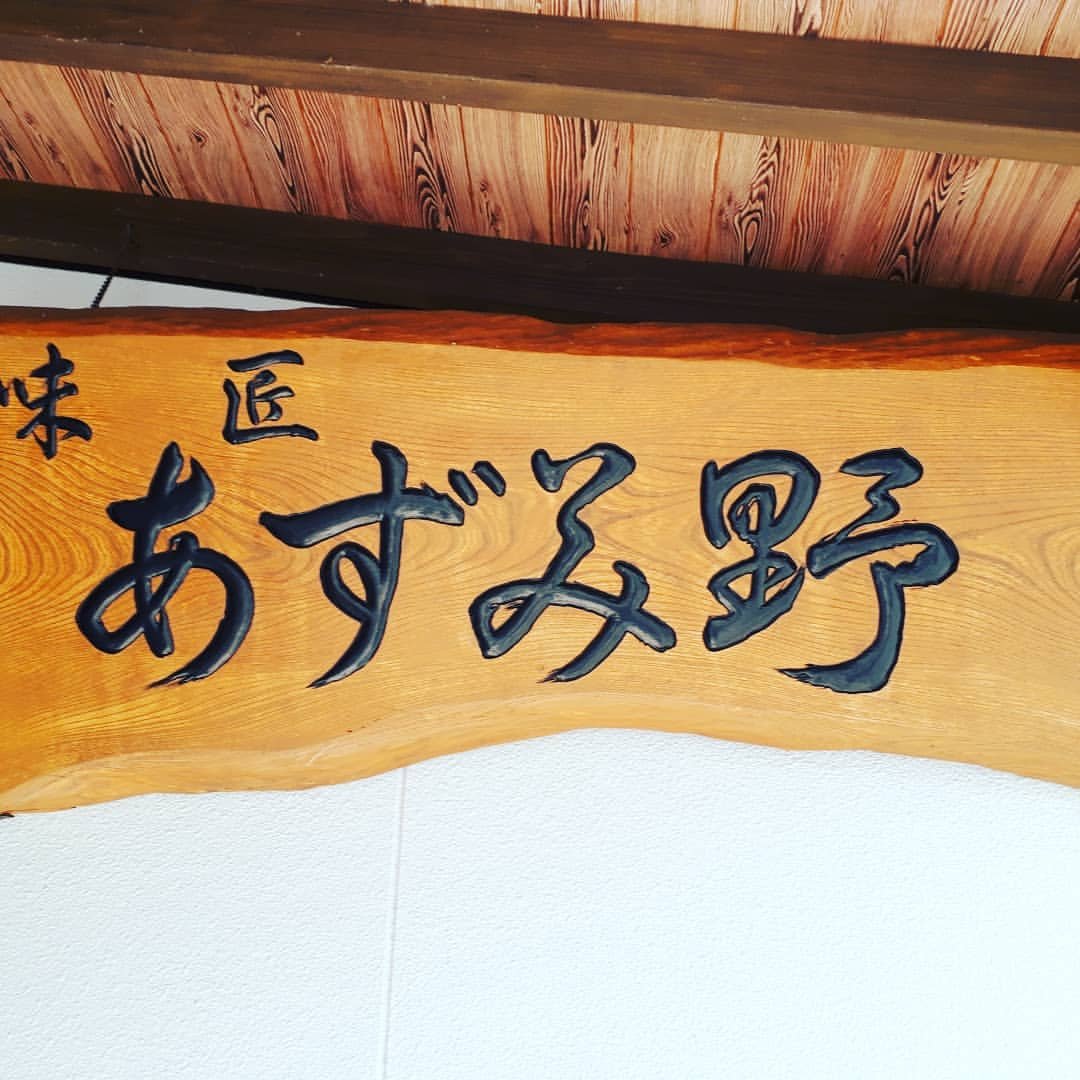 味匠
あずみ野